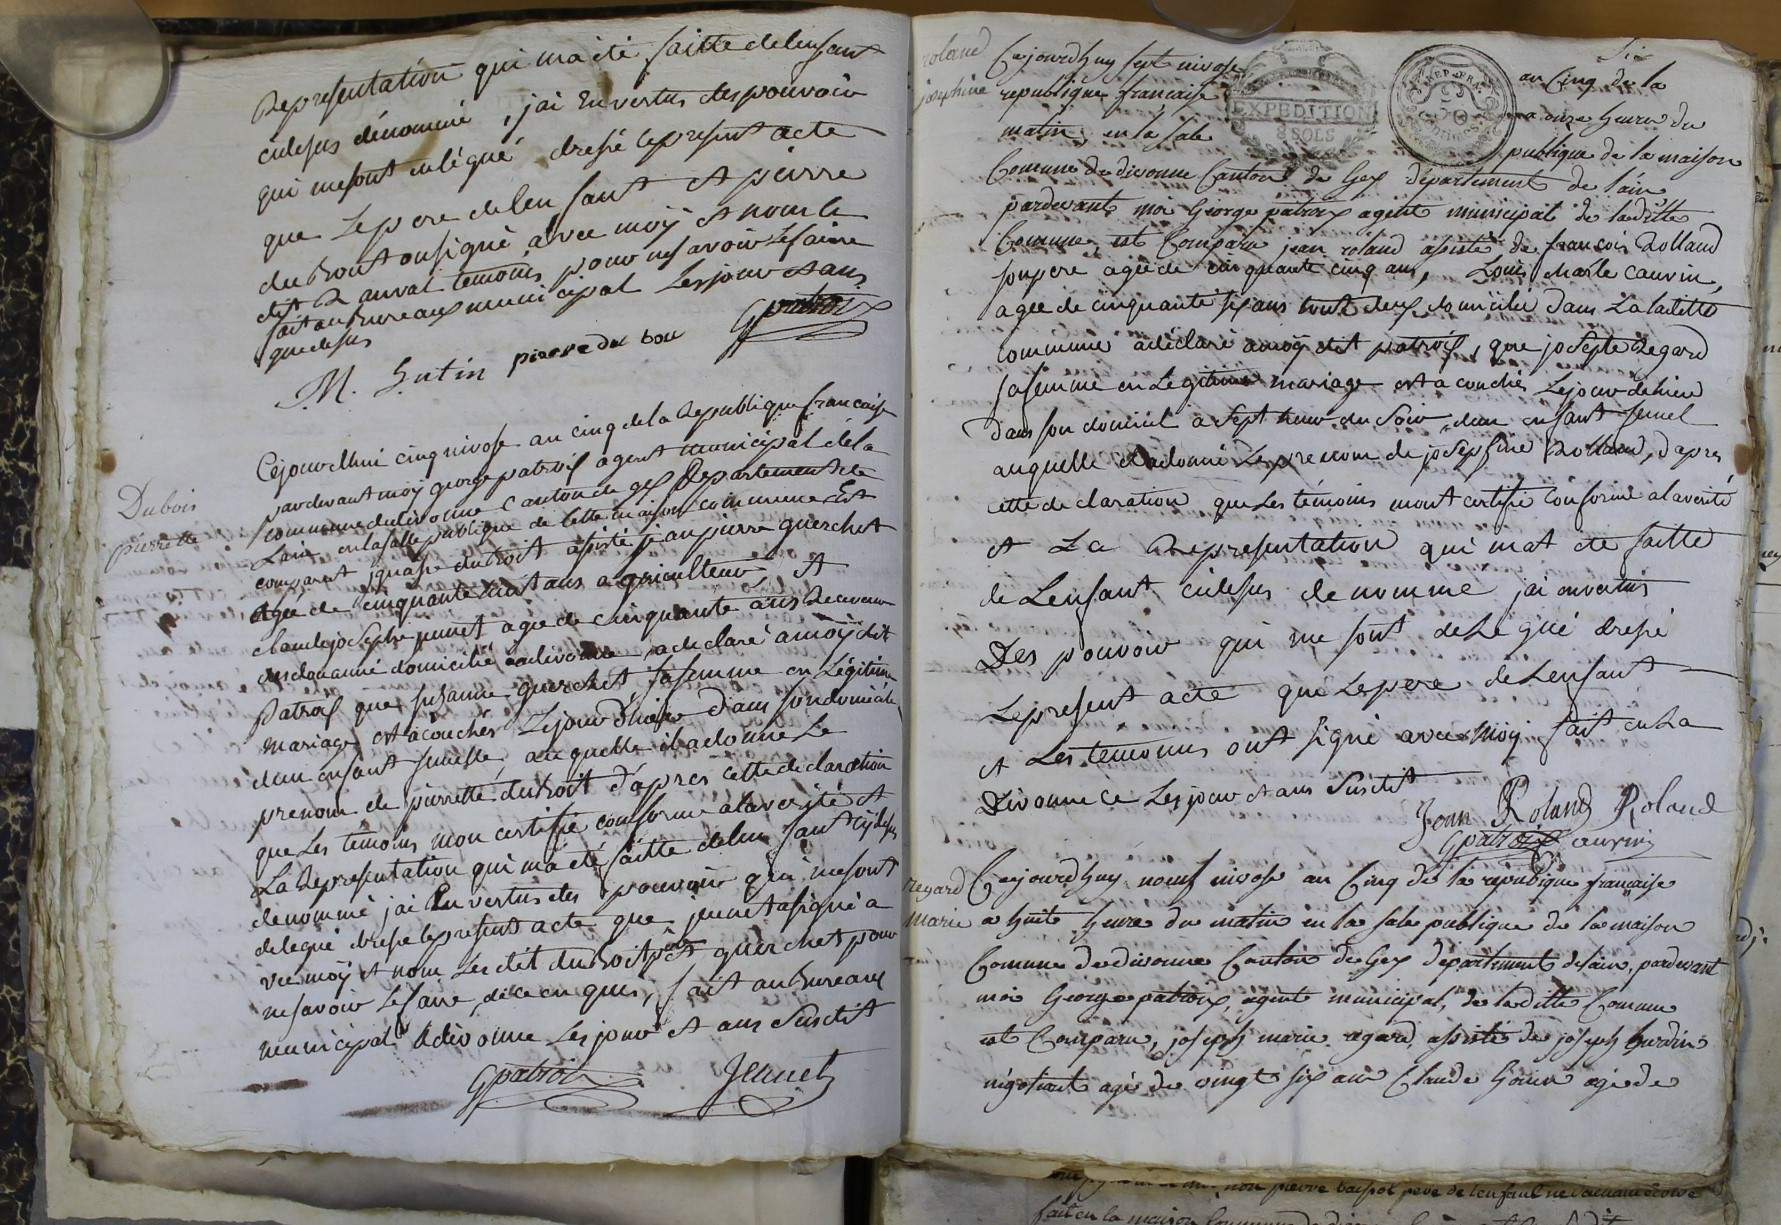 Representation qui ma été faitte delenfant
cidesus dénommé, jai Envertus des pouvoir
qui mesont délégué dresé lepresent acte
que Lepere delenfant et pierre
dubout onsigné avec moÿ et nom le
dit Danvat temoins pour nesavoir Lefaire
fait au Bureaux municipal Lesjour et ans
quedesus
M. hutin pierre du bou Gpatroix
Dubois
pierrette
Cejourdhui cinq nivose an cinq dela Republique francaise
pardevant moÿ george patroix agent municipal dela
commune dedivonne Canton de gex Departement de
Lain enlasalle publique de Cette maison commune Est
comparut ignase dutroit assisté jeanpierre querchet
agée de cinquante huit ans agriculteur, et
claudejosephe junet agee de cinquante ans Receveur
desdouanne domicilié adivonne, adeclaré a moÿ dit
Patroix que susanne querchet, safemme en Légitime
mariage est acouchés Lejour dhier dans sondomicile
dun enfant femelle, auquelle iladonné Le
prenom de pierrette dutroit d'apres cette declaration
que Les temoins mon certifié conforme alaverité et
La Representation qui ma été faitte delenfant cydesus
denommé jai Envertus des pouvoir qui mesont
delegué dresé lepresent acte que jeunet asigné a
vec moÿ et nom Lesdit dutroit et querchet pour
nesavoir Lefaire, dece enquis, fait au Bureaux
municipal Adivonne Lesjour et ans Susdit
Gpatroix Jeunet
roland
josephine
Cejourdhuy sept nivose
an Cinq de la
republique francaise
a onze heure du
matin, en la sale
publique de la maison
EXPEDITION
8 SOLS
REP. FRA.
Comune de divonne Canton de Gex département de l'ain
pardevant moi George patroix agent municipal de laditte
Comune, est Comparu jean roland assisté de francois Rolland
sonpere agée de cinquante cinq ans, Louis charle cauvin,
agée de cinquante six ans tout deux domicilié dans La laditte
commune adéclaré amoÿ dit patroix, que josepte Regard
safemme en Légitime mariage est acouchés Lejour dehier
dans son domicil a Sept heur du Soir, dun enfant femel
auquelle iladonné Leprenom de joSephine Rolland, d'apres
cette declaration que Les témoins mont certifié Conforme alaverité
et La Representation qui mat ete faitte
de Lenfant cidesus denommé jai envertus
Des pouvoir qui me sont deLegué dresé
Lepresent acte que Lepere deLenfant
et Les temoins ont signé avec moÿ fait enLa
Divonne ce Lesjour et ans Susdit
Jean Roland Roland
Gpatroix cauvin
regard
Marie
Cejourdhuy neuf nivose an Cinq de la republique francaise
a huit heure du matin en la sale publique de la maison
Comune de divonne Canton de Gex département delain, pardevant
moi George patroix, agent municipal, de laditte Comune
est Comparu, joseph marie regard, assisté de joseph
négotiant agé de vingt six ans Claude agé de